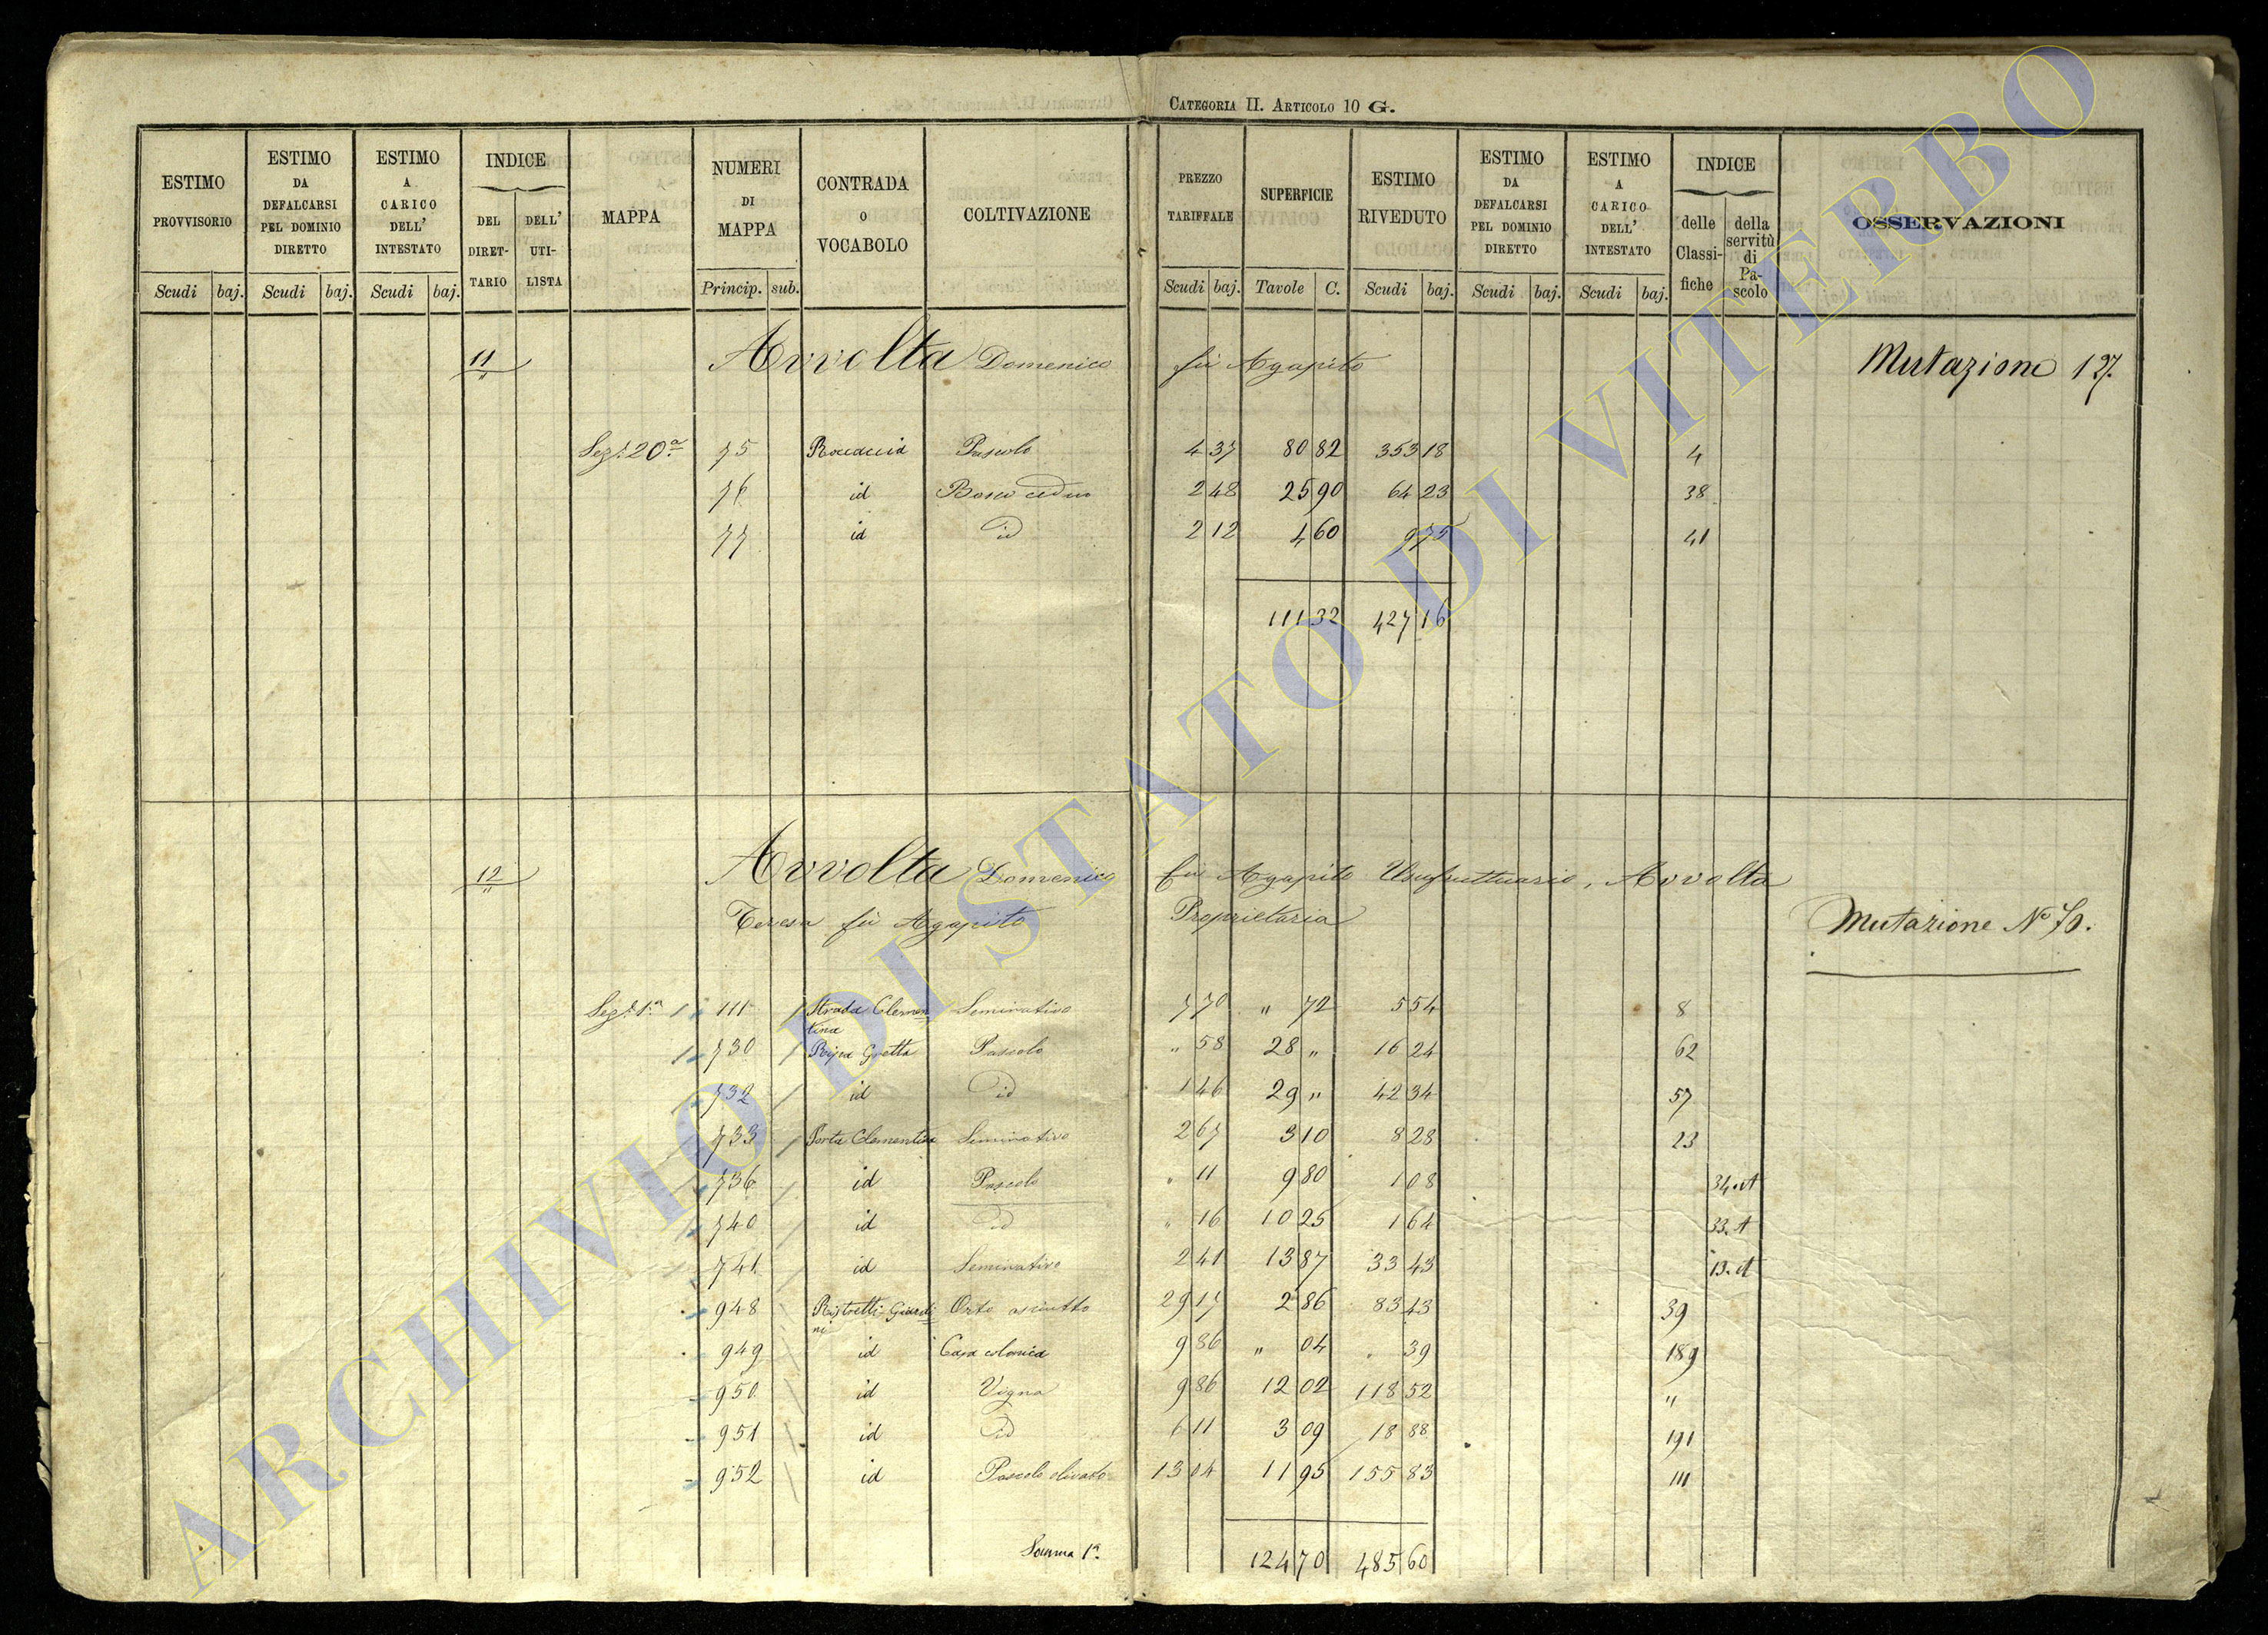 CATEGORIA II. ARTICOLO 10 G.
ESTIMO PROVVISORIO | ESTIMO DA DEFALCARSI PEL DOMINIO DIRETTO | ESTIMO A CARICO DELL' INTESTATO | INDICE DEL DIRET- TARIO | DELL' UTI- LISTA | MAPPA | NUMERI DI MAPPA | CONTRADA O VOCABOLO | COLTIVAZIONE | PREZZO TARIFFALE | SUPERFICIE | ESTIMO RIVEDUTO | ESTIMO DA DEFALCARSI PEL DOMINIO DIRETTO | ESTIMO A CARICO DELL' INTESTATO | INDICE delle Classi- fiche | della servitù di Pa- scolo | OSSERVAZIONI
Scudi baj. Scudi baj. Scudi baj. Princip. sub. Scudi baj. Tavole C. Scudi baj. Scudi baj. Scudi baj.
11 Avvolta Domenico fù Agapito Mutazione 127.
Sez. 20a 75 Pascolo 4 37 80 82 353 18 4
76 id Bosco ceduo 2 48 25 90 64 23 38
77 id id 2 12 4 60 9 75 41
111 32 427 16
12 Avvolta Domenico fù Agapito Usufruttuario, Avvolta
Teresa fù Agapito Proprietaria Mutazione No
Sez. 1a 111 Strada Clemen= Seminativo 7 70 " 72 5 54 8
tina
730 Ripa Gretta Pascolo " 58 28 " 16 24 62
732 id id 1 46 29 " 42 34 57
733 Porta Clementina Seminativo 2 67 3 10 8 28 23
736 id Pascolo " 11 9 80 1 08 34. A
740 id id " 16 10 25 1 64 33. A
741 id Seminativo 2 41 13 87 33 43 13. A
948 Ristretti Giardi= Orto asciutto 29 17 2 86 83 43 39
ni
949 id Casa colonica 9 86 " 04 . 39 189
950 id Vigna 9 86 12 02 118 52 "
951 id id 6 11 3 09 18 88 191
952 id Pascolo olivato 13 04 11 95 155 83 111
Somma 1a 124 70 485 60
ARCHIVIO DI STATO DI VITERBO